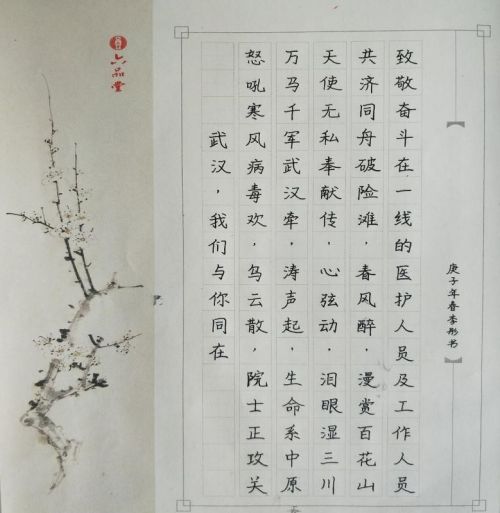 致敬奋斗在一线的医护人员及工作人员
共济同舟破险滩，春风醉，漫赏百花山
天使无私奉献传，心弦动，泪眼湿三川
万马千军武汉牵，涛声起，生命系中原
怒吼寒风病毒欢，乌云散，院士正攻关
武汉，我们与你同在
庚子年春李彤书
六品堂